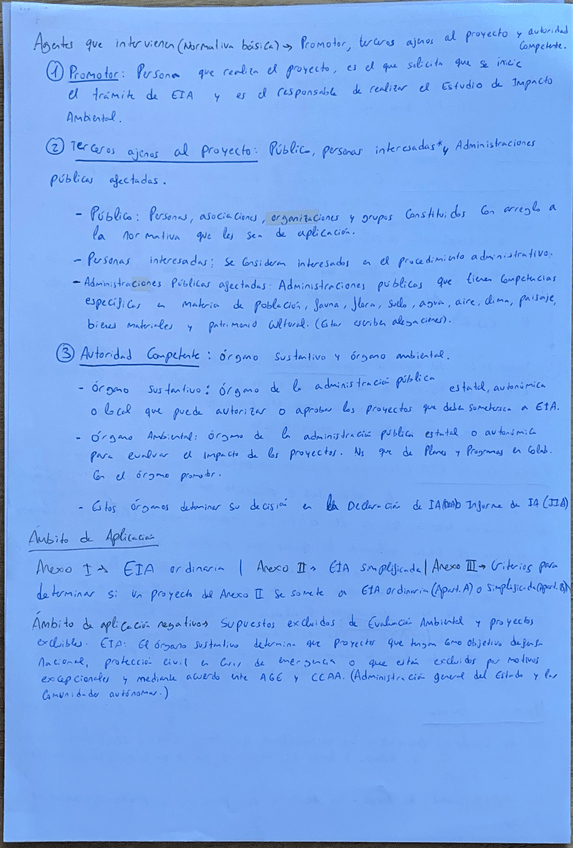 Agentes que intervienen (Normativa básica) → Promotor, terceros ajenos al proyecto y autoridad
competente.
① Promotor: Persona que realiza el proyecto, es el que solicita que se inicie
el trámite de EIA y es el responsable de realizar el Estudio de Impacto
Ambiental.
② Terceros ajenos al proyecto: Público, personas interesadas* y Administraciones
públicas afectadas.
- Público: Personas, asociaciones, organizaciones y grupos constituidos con arreglo a
la normativa que les sea de aplicación.
- Personas interesadas: se consideran interesados en el procedimiento administrativo.
- Administraciones Públicas afectadas: Administraciones públicas que tienen competencias
específicas en materia de población, fauna, flora, suelo, agua, aire, clima, paisaje,
bienes materiales y patrimonio cultural. (Estas escriben alegaciones).
③ Autoridad Competente: órgano sustantivo y órgano ambiental.
- órgano sustantivo: órgano de la administración pública estatal, autonómica
o local que puede autorizar o aprobar los proyectos que deban someterse a EIA.
- órgano Ambiental: órgano de la administración pública estatal o autonómica
para evaluar el impacto de los proyectos. que de Planes y Programas en Colab.
con el órgano promotor.
- Estos órganos determinan su decisión en la Declaración de IA Informe de IA (IIA)
Ámbito de Aplicación
Anexo I → EIA ordinaria | Anexo II → EIA simplificada | Anexo III → Criterios para
determinar si un proyecto del Anexo II se somete a EIA ordinaria (Apart. A) o Simplificada (Apart. B)
Ámbito de aplicación negativo → Supuestos excluidos de Evaluación Ambiental y proyectos
excluibles. EIA: El órgano sustantivo determina que proyectos que tengan como objetivo defensa
Nacional, protección civil en casos de emergencia o que están excluidos por motivos
excepcionales y mediante acuerdo entre AGE y CCAA. (Administración general del Estado y las
Comunidades autónomas.)